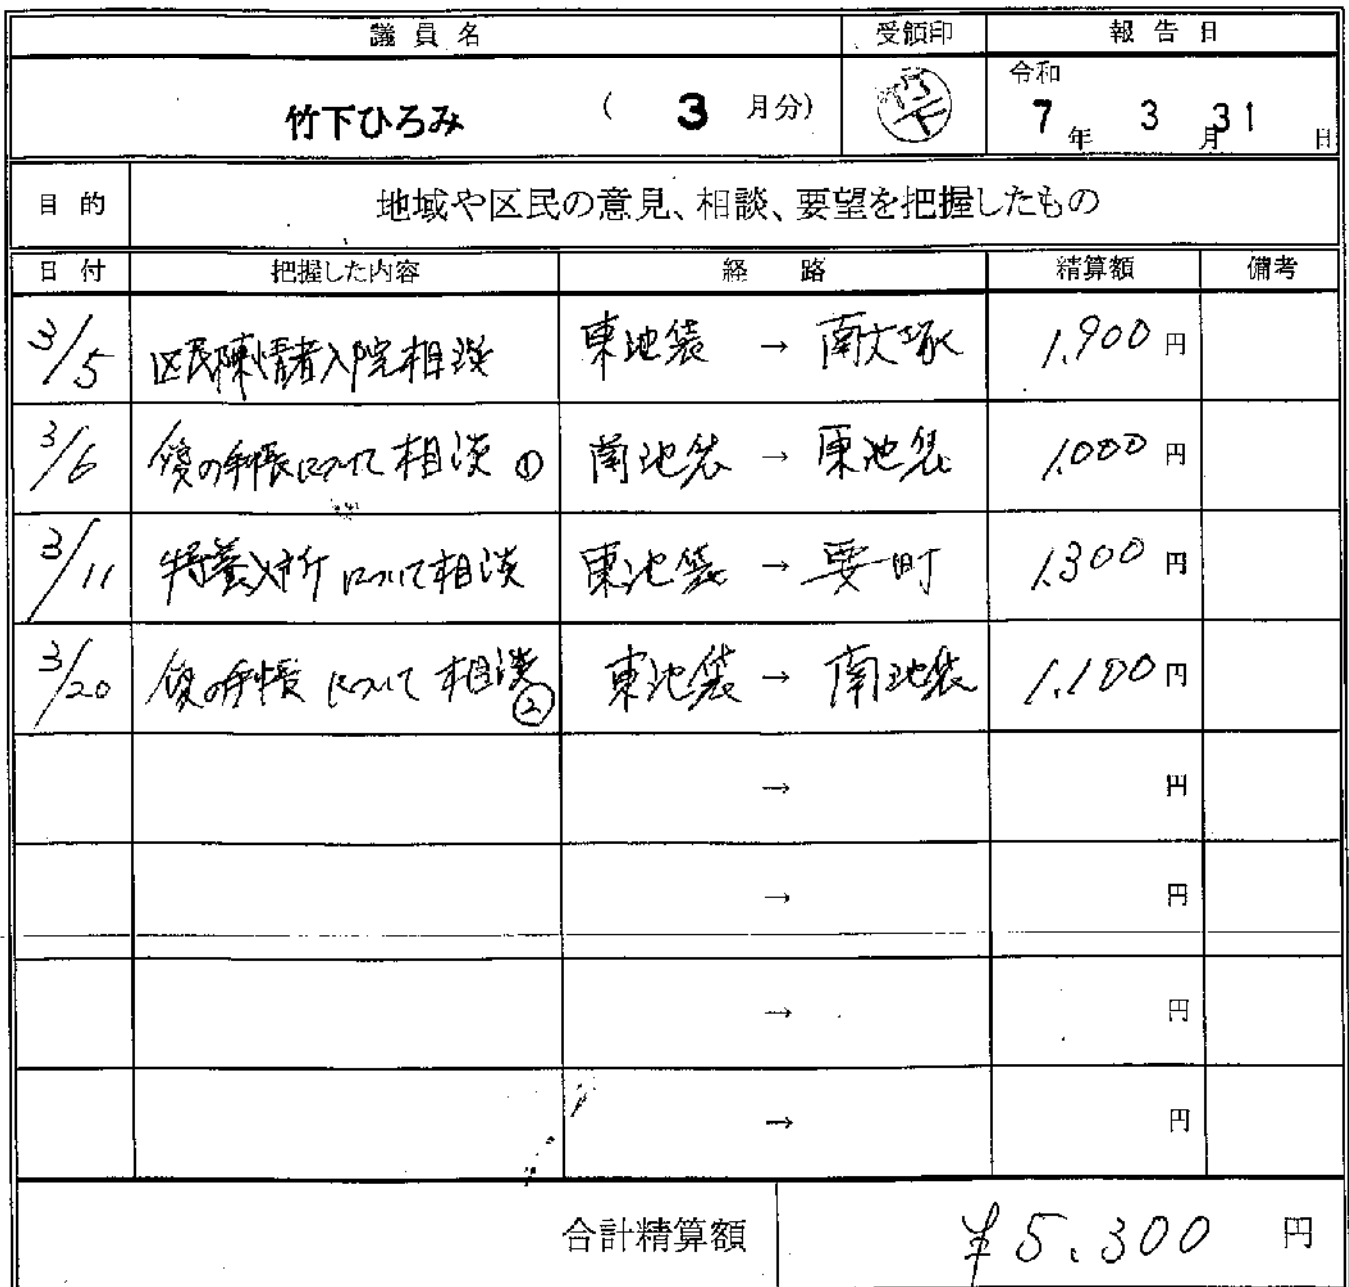 議員名 受領印 報告日
竹下ひろみ ( 3 月分) 竹下 令和 7 年 3 月 31 日
目的 地域や区民の意見、相談、要望を把握したもの
日付 把握した内容 経路 精算額 備考
3/5 区民陳情者入院相談 東池袋 → 南大塚 1,900 円
3/6 の手帳について相談 ① 南池袋 → 東池袋 1,000 円
3/11 特養入所について相談 東池袋 → 要町 1,300 円
3/20 の手帳について相談 ② 東池袋 → 南池袋 1,100 円
→ 円
→ 円
→ 円
→ 円
合計精算額 ¥5,300 円